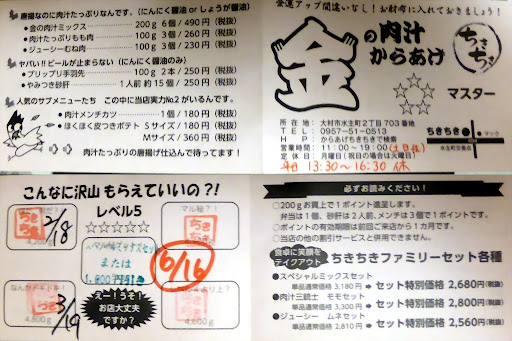 唐揚なのに肉汁たっぷりなんです。(にんにく醤油 or しょうが醤油)
・金の肉汁ミックス 200g 6個/490円(税抜)
・肉汁たっぷりもも肉 100g 3個/260円(税抜)
・ジューシーむね肉 100g 3個/230円(税抜)
ヤバい!!ビールが止まらない (にんにく醤油のみ)
・プリップリ手羽先 100g 2本/250円(税抜)
・やみつき砂肝 1人前 約15個/250円(税抜)
人気のサブメニューたち この中に当店実力№2がいるんです。
・肉汁メンチカツ 1個/180円(税抜)
・ほくほく皮つきポテト Sサイズ/180円(税抜)
Mサイズ/360円(税抜)
肉汁たっぷりの唐揚げ仕込んで待ってます!
金運アップ間違いなし!お財布に入れておきましょう!
金の肉汁からあげ
ちきちき
マスター
所在地:大村市水主町2丁目703番地
TEL:0957-51-0513
HP:からあげちきちきで検索
営業時間:11:00~19:00(土日祝)
定休日:月曜日(祝日の場合は火曜日)
平日 13:30~16:30 休
ちきちき
マック
水主町交差点
こんなに沢山 もらえていいの?!
レベル5
マル秘?!
2/8
マル秘ミックスセット
または
1,000円引き
6/16
3/19
4,600g
4,800g
えー!うそ!
お店大丈夫
ですか?
必ずお読みください!
○200gお買上で1ポイント進呈します。
弁当は1個、砂肝は2人前、メンチは3個で1ポイントです。
○ポイントの有効期限は前回ご来店から1カ月です。
○当店の他の割引サービスと併用できません。
食卓に笑顔を
テイクアウト
ちきちきファミリーセット各種
●スペシャルミックスセット
単品通常価格 3,180円➡セット特別価格 2,680円(税抜)
●肉汁三銃士 モモセット
単品通常価格 3,300円➡セット特別価格 2,800円(税抜)
●ジューシー ムネセット
単品通常価格 2,810円➡セット特別価格 2,560円(税抜)